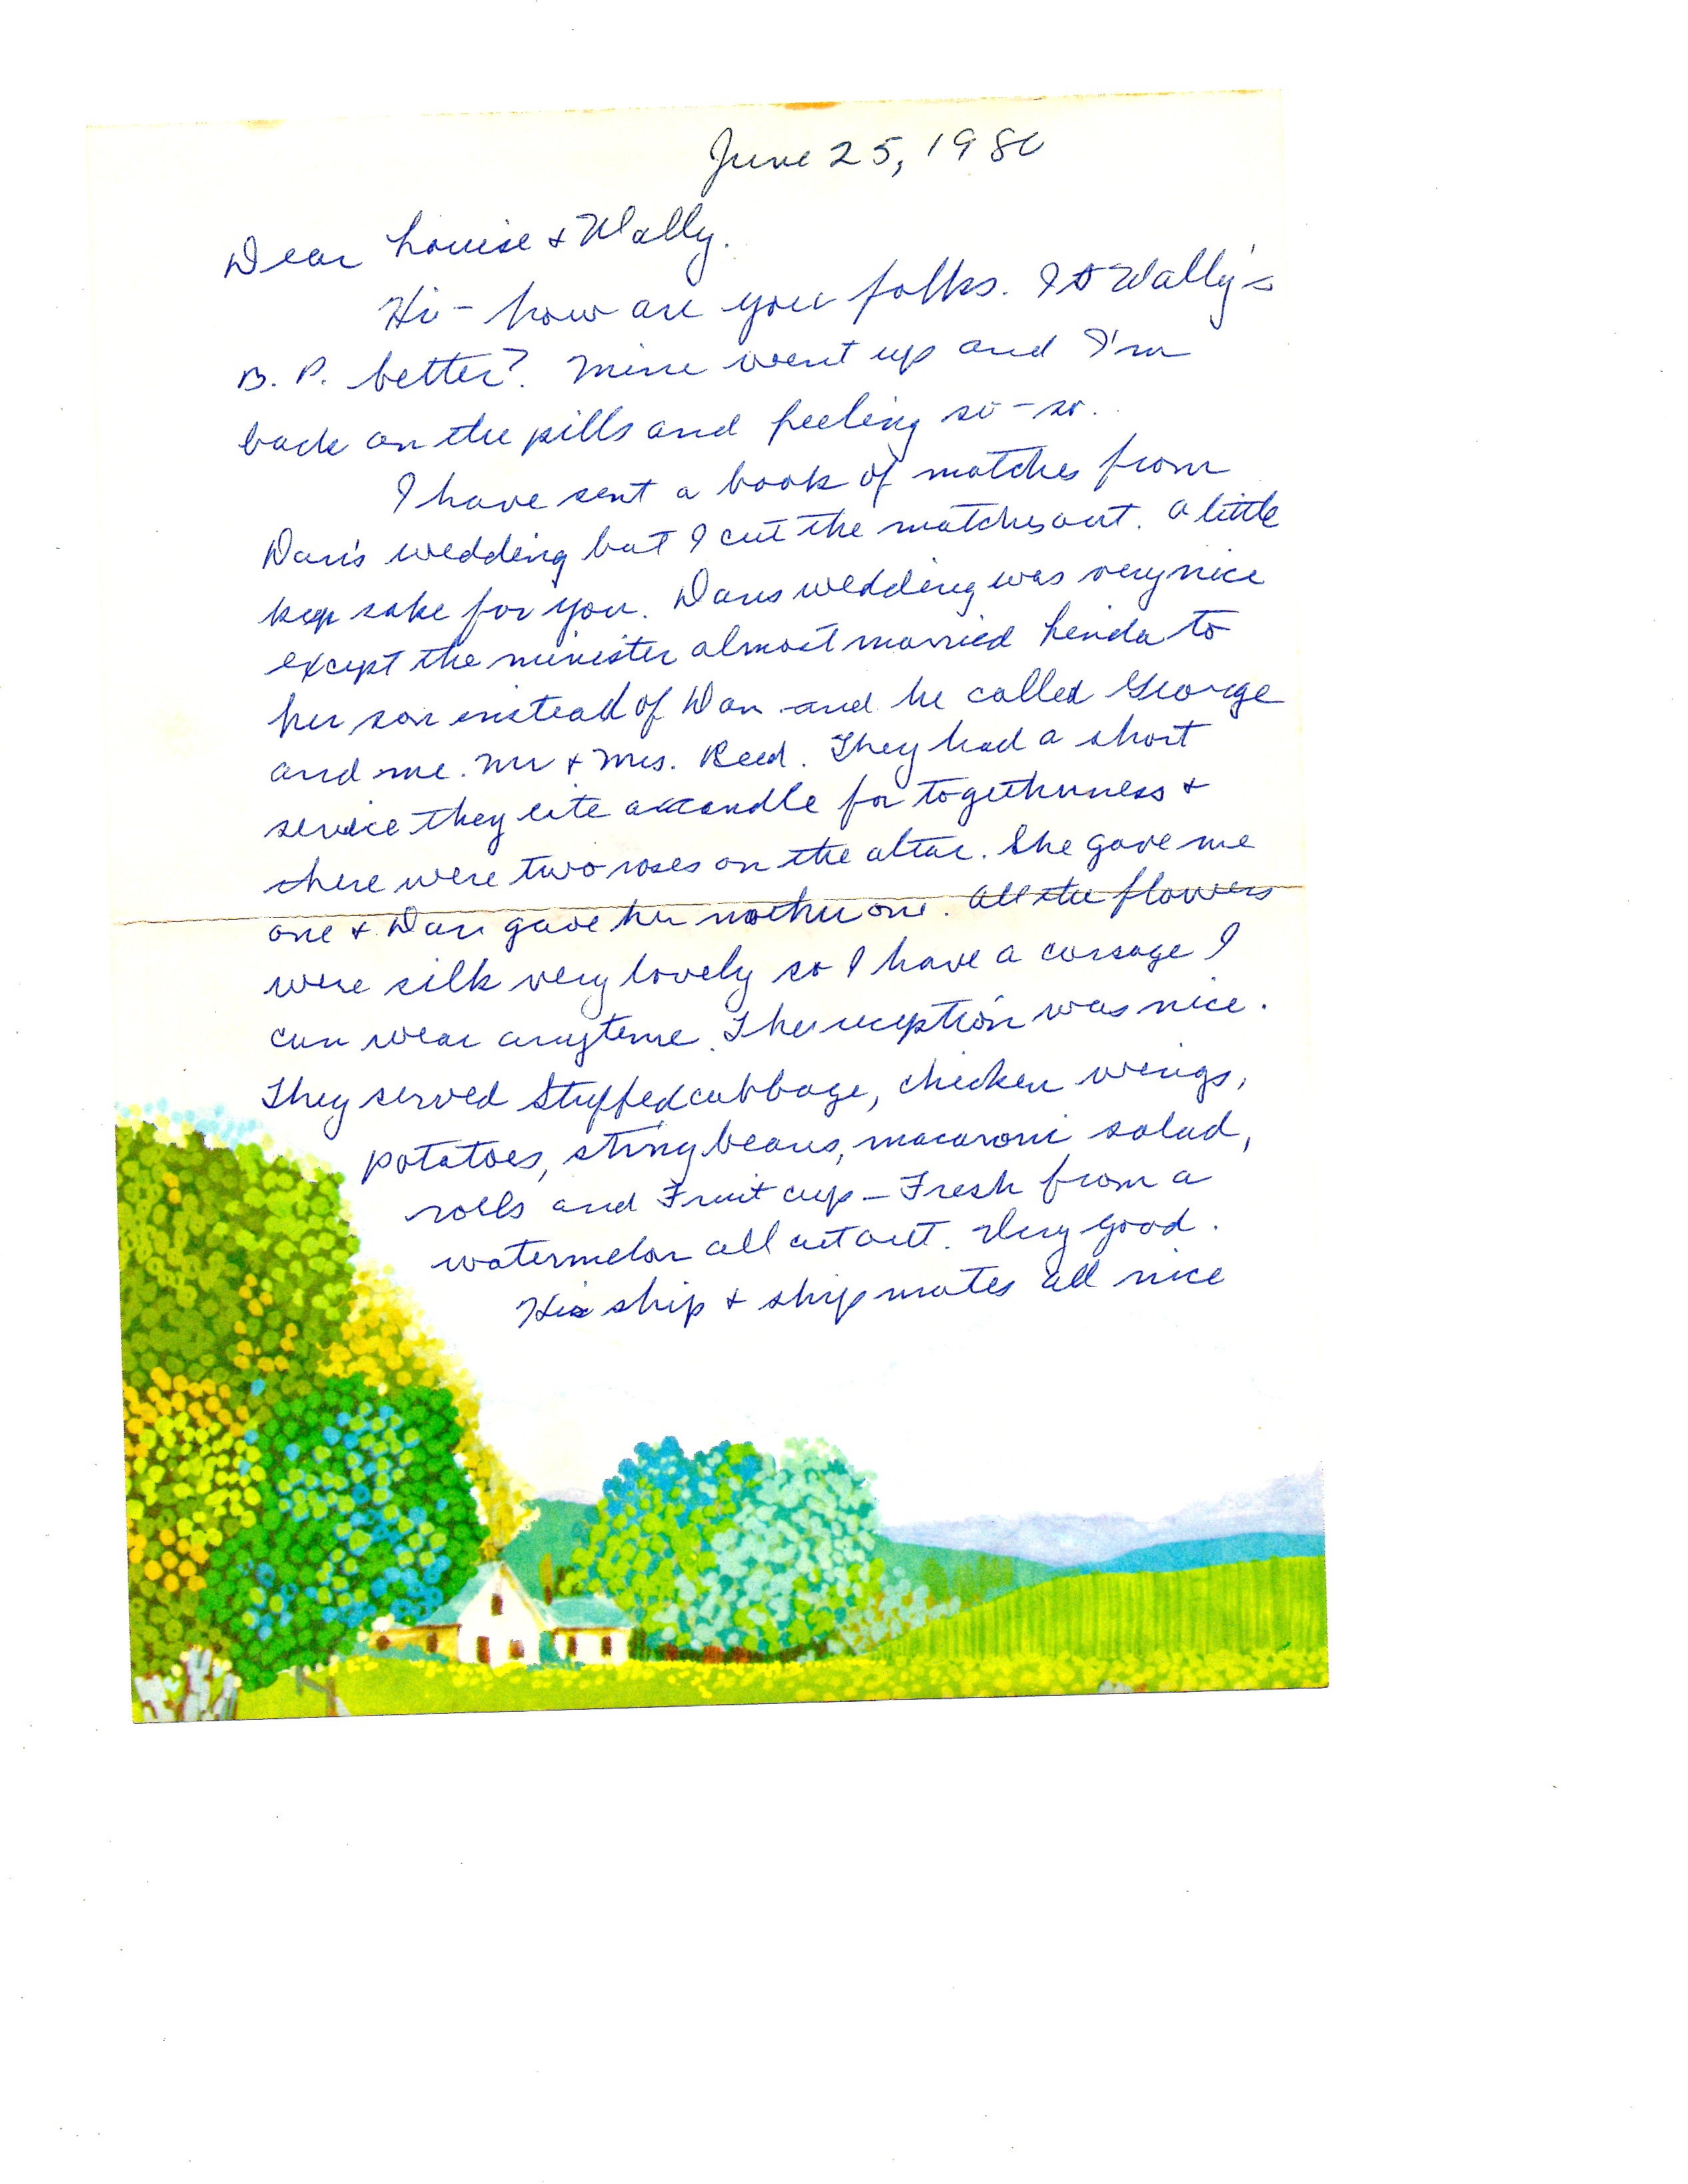 June 25, 1980
Dear Louise & Wally.
Hi - how are you folks. Is Wally's
B. P. better? Mine went up and I'm
back on the pills and feeling so-so.
I have sent a book of matches from
Dan's wedding but I cut the matches out. a little
keep sake for you. Dans wedding was very nice
except the minister almost married Linda to
her son instead of Dan and he called George
and me. Mr & Mrs. Reed. They had a short
service they lite a candle for togetherness &
there were two roses on the altar. She gave me
one & Dan gave her mother one. All the flowers
were silk very lovely so I have a corsage I
can wear anytime. The reception was nice.
They served Stuffed cabbage, chicken wings,
potatoes, string beans, macaroni salad,
rolls and Fruit cup - Fresh from a
watermelon all cut out. Very good.
His ship & shipmates all nice